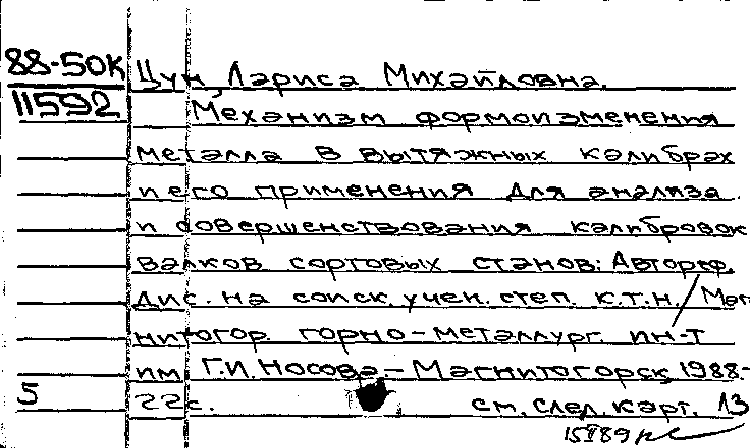 88-50К Цун, Лариса Михайловна.
11592 Механизм формоизменения
металла в вытяжных калибрах
и его применения для анализа
и совершенствования калибровок
валков сортовых станов: Автореф.
дис. на соиск. учен. степ. к.т.н. / Маг-
нитогор. горно-металлург. ин-т
им. Г.И. Носова. - Магнитогорск, 1988.-
5 22с. см. след. карт. 13